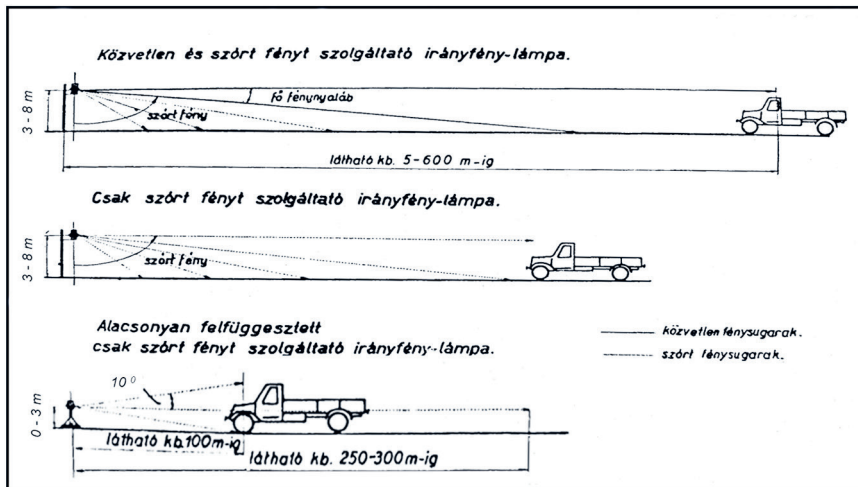 Közvetlen és szórt fényt szolgáltató irányfény-lámpa.
3-8 m
fő fénynyaláb
szórt fény
látható kb. 5-600 m-ig
Csak szórt fényt szolgáltató irányfény-lámpa.
3-8 m
szórt fény
Alacsonyan felfüggesztett
csak szórt fényt szolgáltató irányfény-lámpa.
közvetlen fénysugarak.
szórt fénysugarak.
10°
0-3 m
látható kb. 100 m-ig
látható kb. 250-300 m-ig